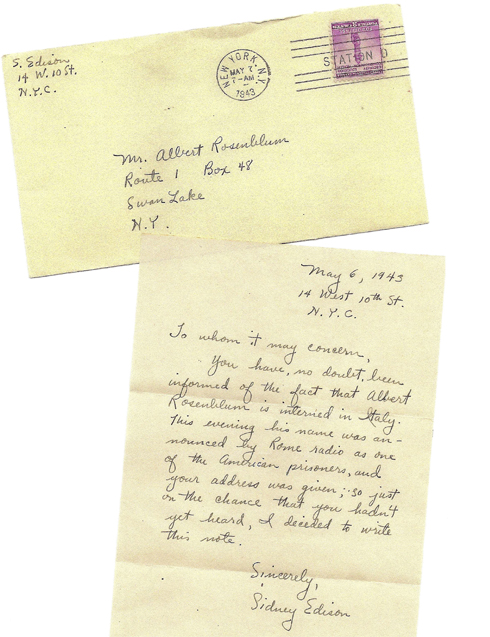 S. Edison
14 W. 10 St.
N.Y.C.
NEW YORK, N.Y.
MAY 7
1943
STATION D
Mr. Albert Rosenblum
Route 1 Box 48
Swan Lake
N.Y.
May 6, 1943
14 West 10th St.
N.Y.C.
To whom it may concern,
You have, no doubt, been
informed of the fact that Albert
Rosenblum is interned in Italy.
This evening his name was an-
nounced by Rome radio as one
of the American prisoners, and
your address was given; so just
on the chance that you hadn't
yet heard, I decided to write
this note.
Sincerely,
Sidney Edison